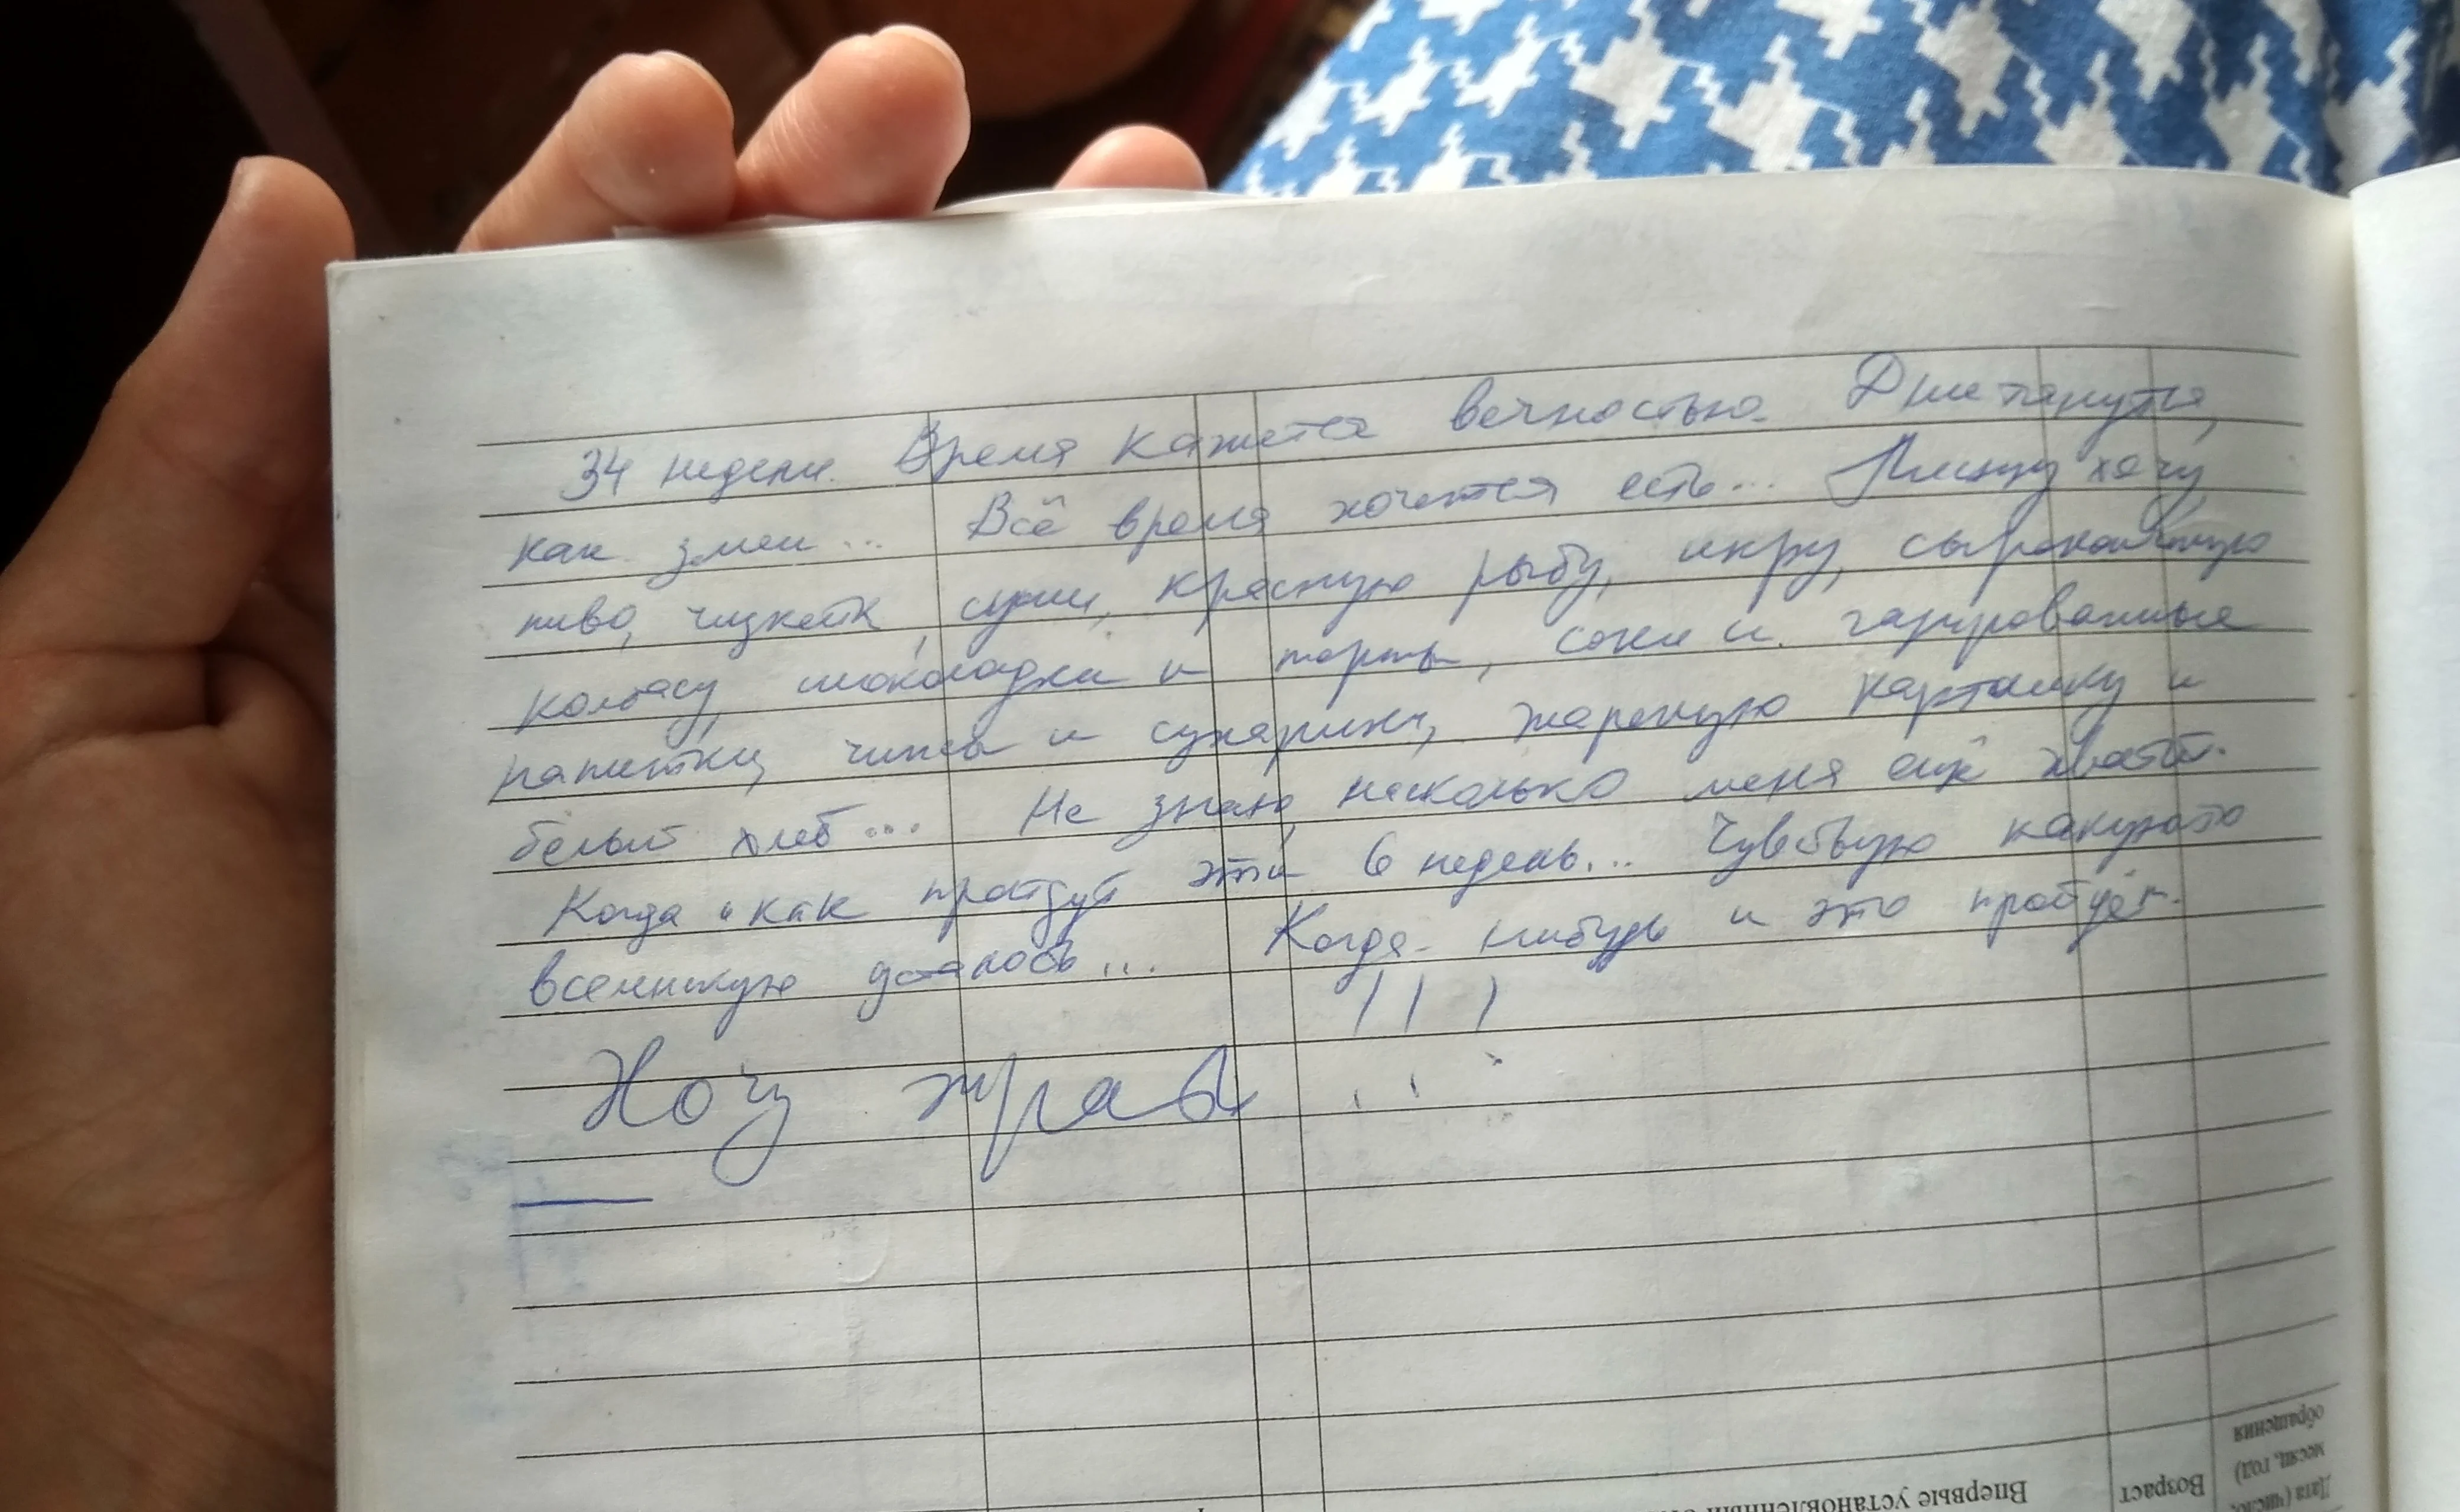 34 недели. Время кажется вечностью. Дни тянутся,
как змеи... Всё время хочется есть... Пиццу хочу,
пиво, чизкейк, суши, красную рыбу, икру, сырокопчёную
колбасу, шоколадки и торты, соки и газированные
напитки, чипсы и сухарики, жареную картошку и
белый хлеб... Не знаю, насколько меня ещё хватит.
Когда и как пройдут эти 6 недель... Чувствую какую-то
вселенскую усталость... Когда-нибудь и это пройдёт.
Хочу жрать!!!
Впервые установленный
Возраст
Дата (число,
месяц, год)
обращения